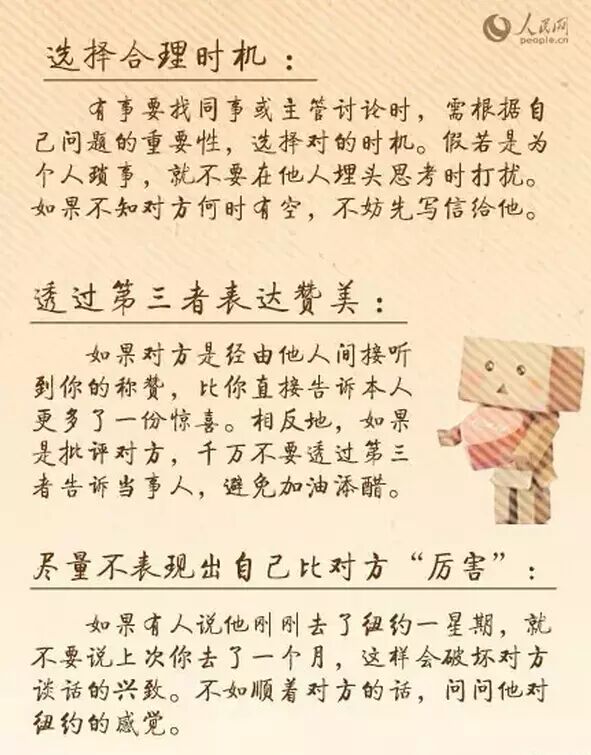 人民网
people.cn
选择合理时机：
有事要找同事或主管讨论时，需根据自
己问题的重要性，选择对的时机。假若是为
个人琐事，就不要在他人埋头思考时打扰。
如果不知对方何时有空，不妨先写信给他。
透过第三者表达赞美：
如果对方是经由他人间接听
到你的称赞，比你直接告诉本人
更多了一份惊喜。相反地，如果
是批评对方，千万不要透过第三
者告诉当事人，避免加油添醋。
尽量不表现出自己比对方“厉害”：
如果有人说他刚刚去了纽约一星期，就
不要说上次你去了一个月，这样会破坏对方
谈话的兴致。不如顺着对方的话，问问他对
纽约的感觉。